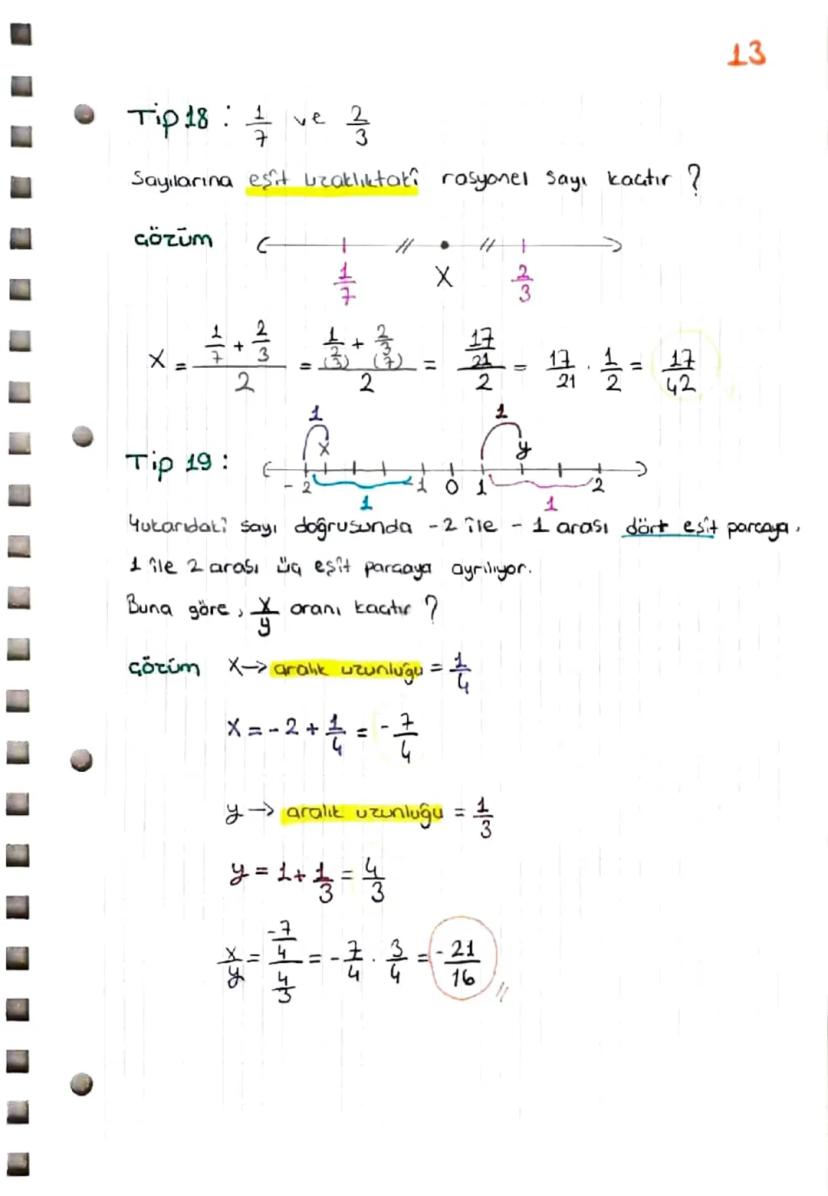 13
Tip 18 : 1/7 ve 2/3
Sayılarına eşit uzaklıktaki rasyonel sayı kaçtır ?
ÇÖZÜM
1/7 x 2/3
x = (1/7 + 2/3)/2 = (1/7 (3) + 2/3 (7))/2 = (17/21)/2 = 17/21 . 1/2 = 17/42
1 1
Tip 19 : x y
-2 -1 0 1 2
1 1
Yukarıdaki sayı doğrusunda -2 ile -1 arası dört eşit parçaya,
1 ile 2 arası üç eşit parçaya ayrılıyor.
Buna göre, x/y oranı kaçtır ?
ÇÖZÜM x → aralık uzunluğu = 1/4
x = -2 + 1/4 = -7/4
y → aralık uzunluğu = 1/3
y = 1 + 1/3 = 4/3
x/y = (-7/4)/(4/3) = -7/4 . 3/4 = -21/16 //